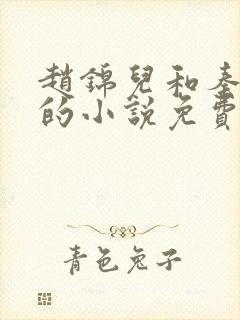 趙錦兒和秦
的小說免費
青色兔子